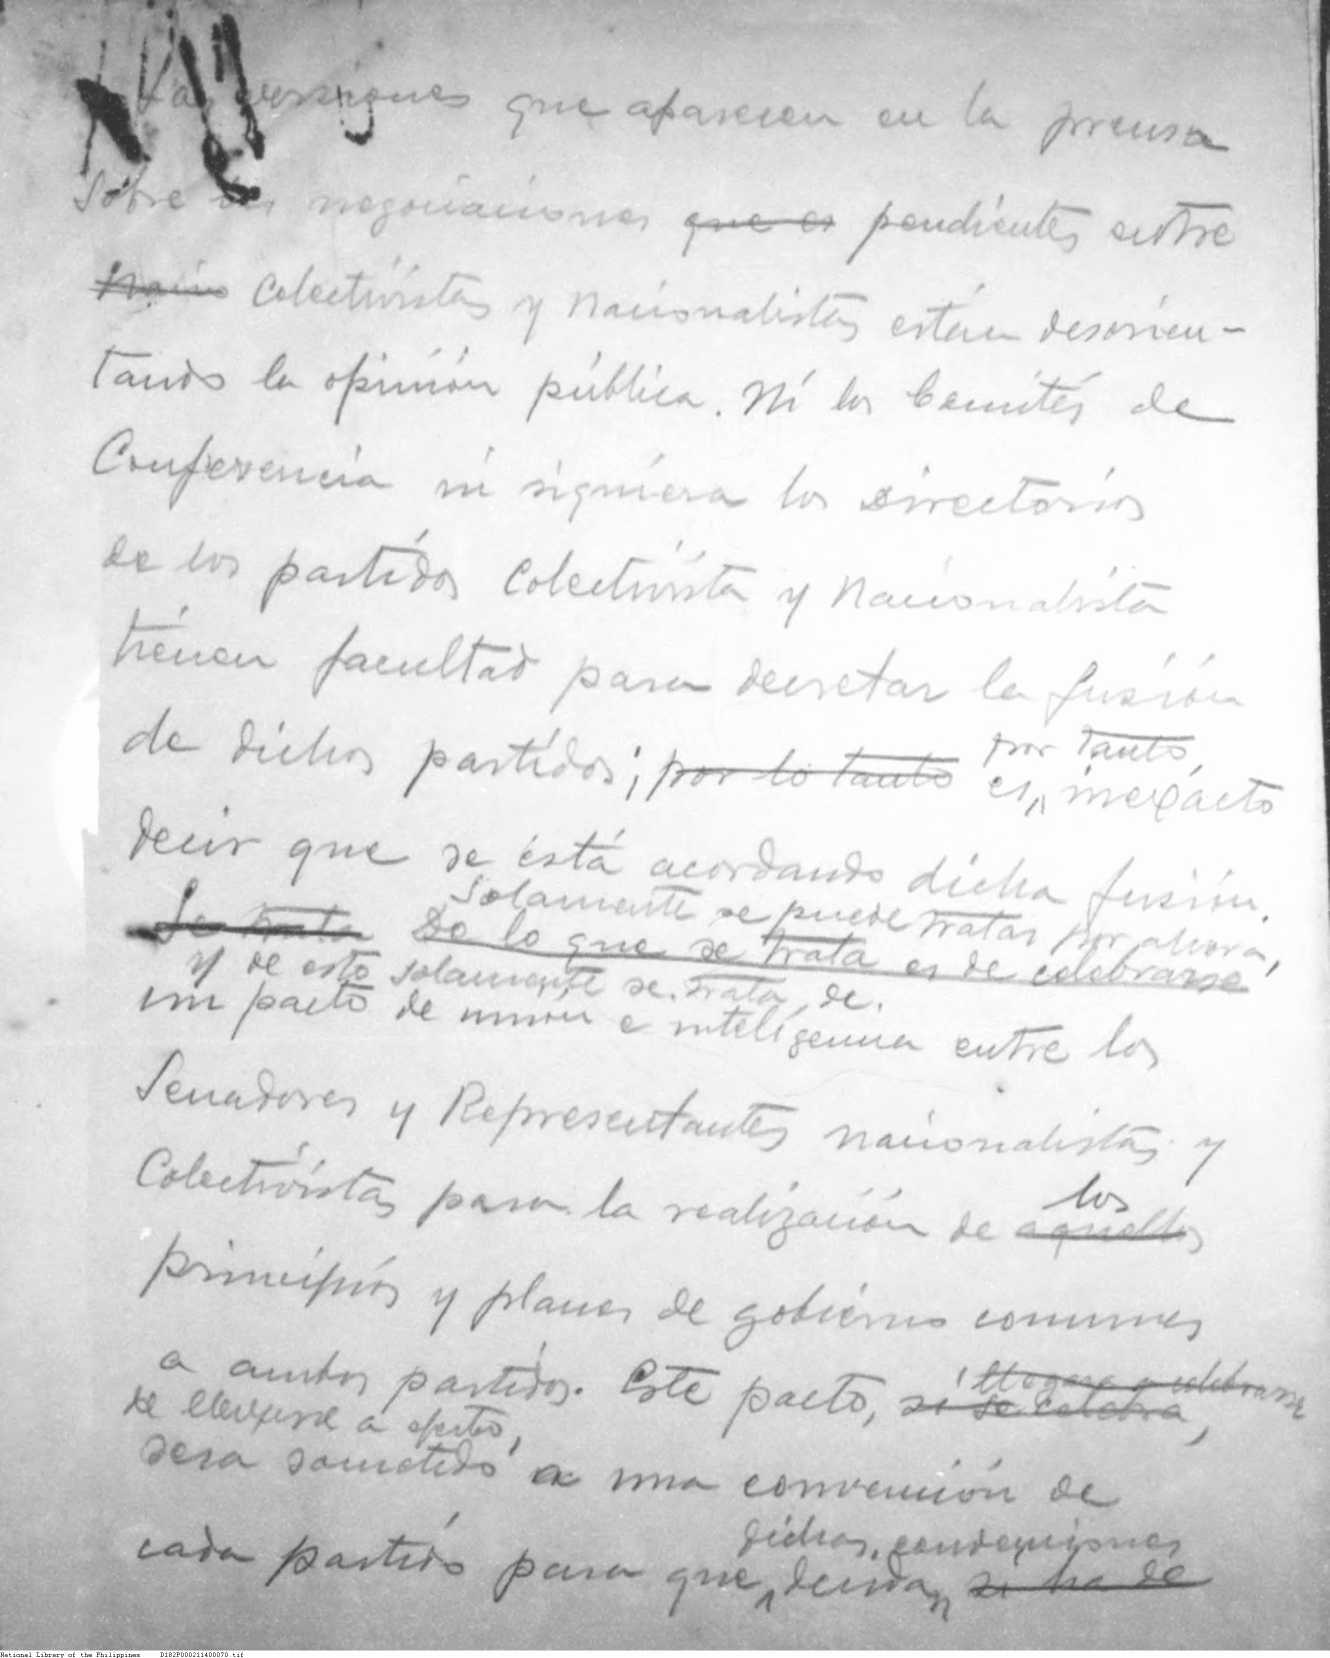 Las versiones que aparecen en la prensa
sobre las negociaciones que es pendientes entre
Colectivistas y Nacionalistas están desorien-
tando la opinión pública. Ni los Comités de
Conferencia ni siquiera los Directorios
de los partidos Colectivista y Nacionalista
tienen facultad para decretar la fusión
de dichos partidos; por lo tanto es, inexacto
por tanto,
decir que se está acordando dicha fusión.
Solamente se puede tratar por ahora,
Se trata De lo que se trata es de celebrarse
y de esto solamente se trata, de.
un pacto de unión e inteligencia entre los
Senadores y Representantes nacionalistas y
Colectivistas para la realización de aquellos
los
principios y planes de gobierno comunes
a ambos partidos. Este pacto, si se celebra,
llegase a celebrarse
de llevarse a efecto,
sera sometido a una convención de
cada partido para que decida si ha de
dichas convenciones
National Library of the Philippines D182P000211400070.tif